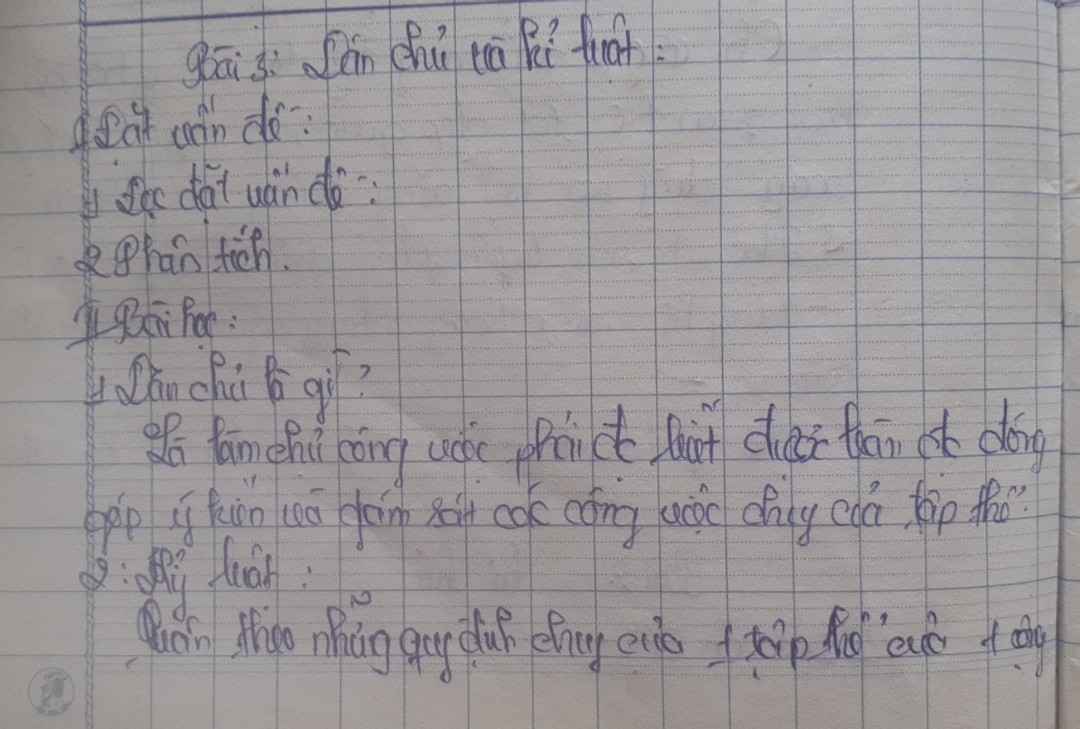 Bài 3: Dân chủ và kỉ luật:
I Đặt vấn đề:
1 Đọc đặt vấn đề:
2 Phân tích.
II Bài học:
1 Dân chủ là gì?
Là làm chủ công việc phải được đóng
góp ý kiến và giám sát các công việc chug của tập thể.
2: Kỷ luật:
Tuân theo những quy định chug của 1 tập thể của 1 cộng